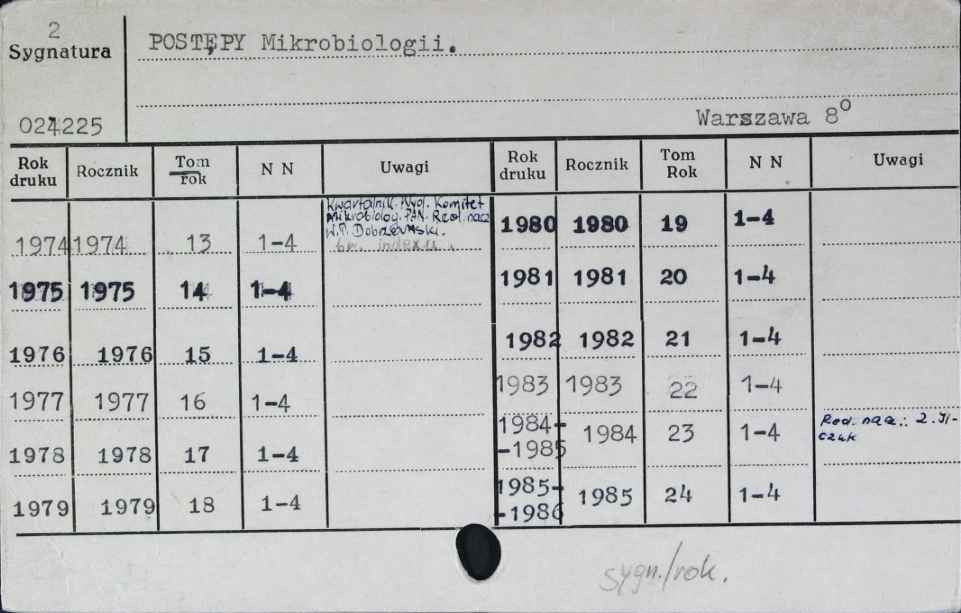 2
Sygnatura
POSTĘPY Mikrobiologii.
024225
Warszawa 8°
Rok druku Rocznik Tom rok N N Uwagi Rok druku Rocznik Tom Rok N N Uwagi
1974 1974 13 1-4 Kwartalnik. Wyd. Komitet
Mikrobiolog. PAN. Red. nacz
W.T. Dobrzański.
bez indexu.
1975 1975 14 1-4
1976 1976 15 1-4
1977 1977 16 1-4
1978 1978 17 1-4
1979 1979 18 1-4
1980 1980 19 1-4
1981 1981 20 1-4
1982 1982 21 1-4
1983 1983 22 1-4
1984-
-1985 1984 23 1-4 Red. nacz.: Z.
czuk
1985-
-1986 1985 24 1-4
sygn./rok.